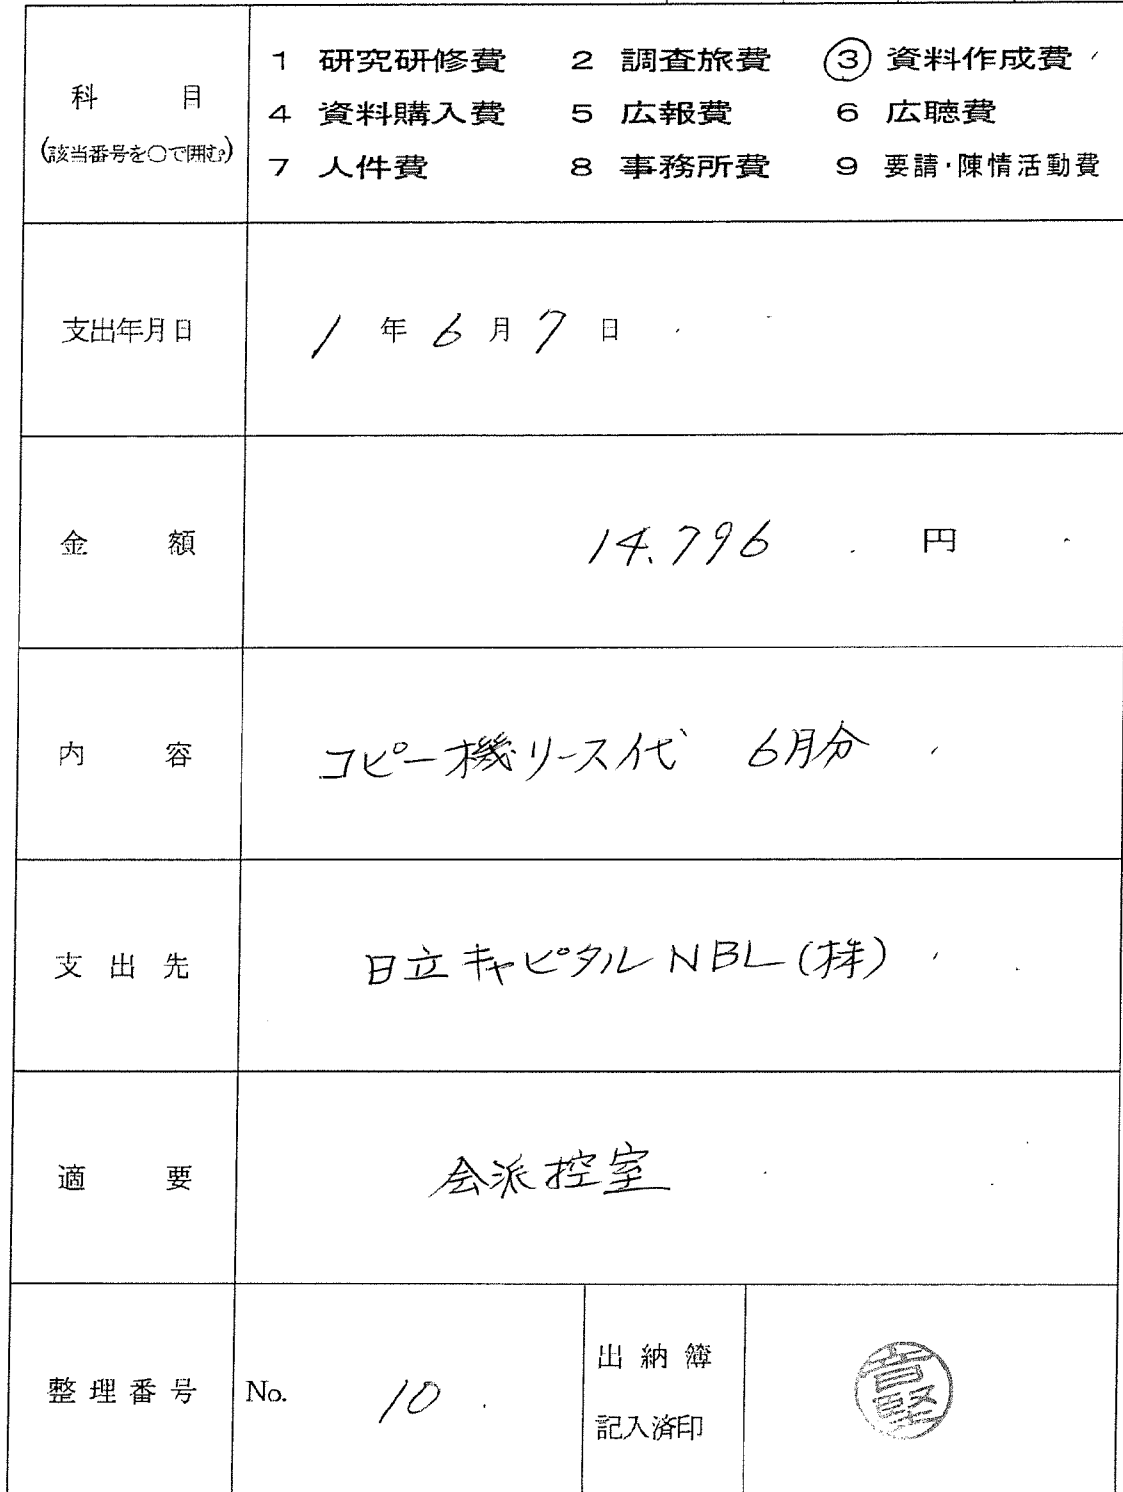 科 目
(該当番号を○で囲む)
1 研究研修費 2 調査旅費 ③ 資料作成費
4 資料購入費 5 広報費 6 広聴費
7 人件費 8 事務所費 9 要請・陳情活動費
支出年月日 1 年 6 月 7 日
金 額 14.796 円
内 容 コピー機リース代 6月分
支 出 先 日立キャピタルNBL(株)
適 要 会派控室
整 理 番 号 No. 10
出 納 簿
記入済印